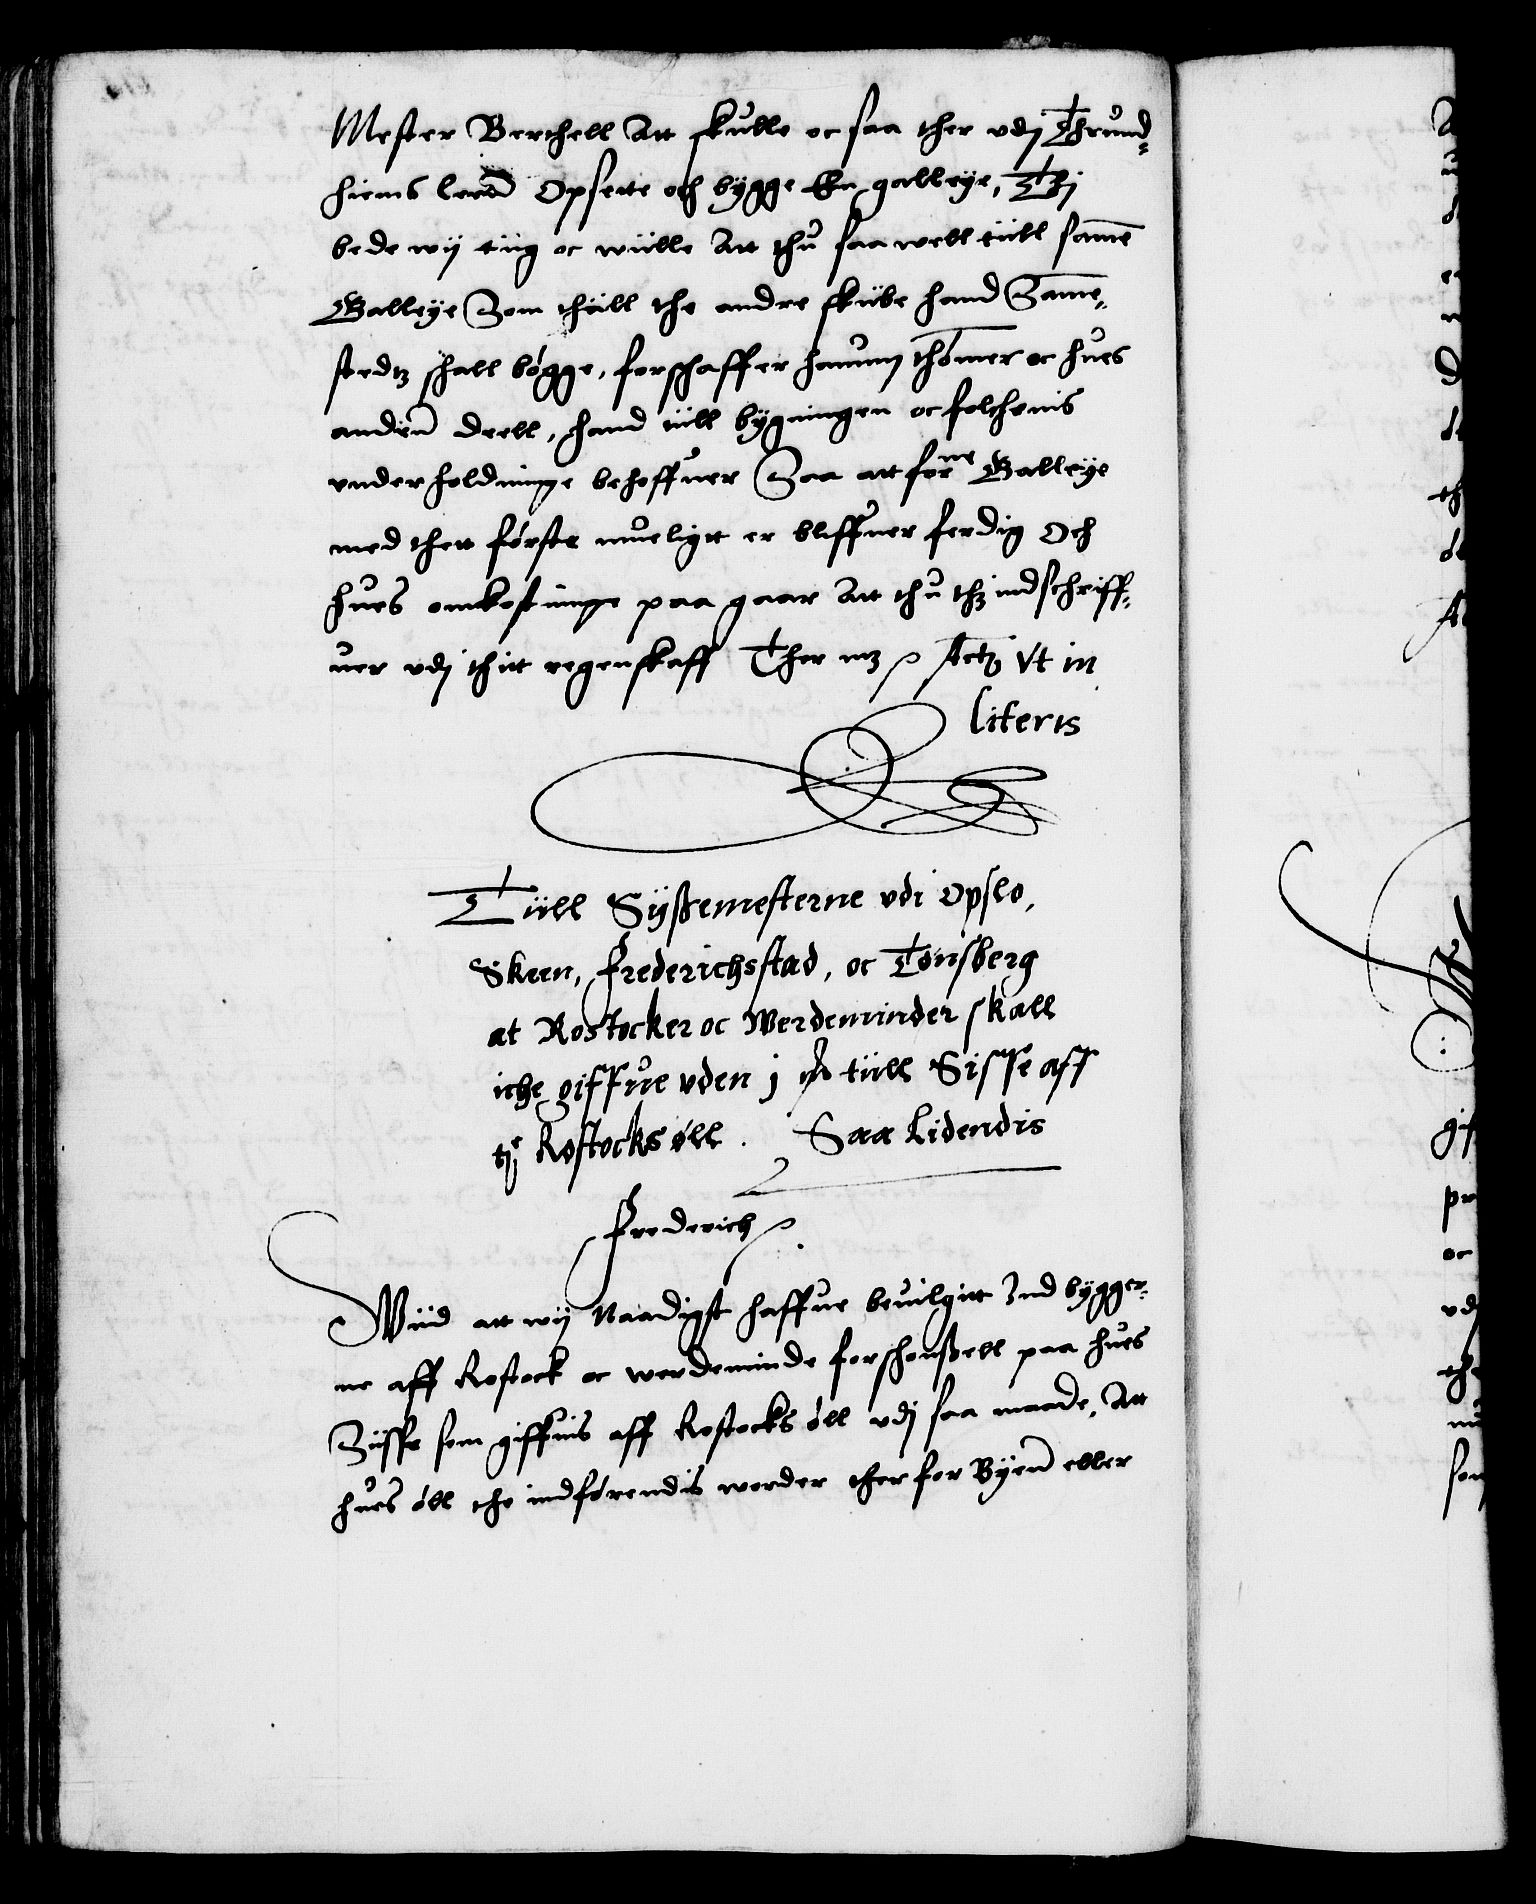 Mester Berthell Att skulle oc saa ther vdj Thrund-
hiems leen Opsette och bygge En galleye, Thj
bede wij tüg oc wülle Att thu saa well tüll samē
Galleye Som thüll the andre skübe hand Same-
stedtz shall bögge, forschaffer hanum thømer oc hues
anden deell, hand tüll bygningen oc folchenis
vnderholdninge behoffuer Saa att forne Galleye
med thett første mueligtt er bliffuer ferdig Och
hues omkostninge paa gaar Att thu thz indschriff-
uer vdj thitt regenskaff Ther mz Actz Vt in
literis
Tüll Syßemesterne vdi Opslo,
Skeen, Frederichsstad, oc Tønsberg
at Rostocker oc Werdeminder skall
iche giffue vden j tüll Sisse aff
Rostocks øll. Saa Lidendis
Frederich
Wiid att wij Naadigst haffue beuilgitt Indbygger-
ne aff Rostock oc werdeminde forschonßell paa hues
Züsse som giffuis aff Rostocks öll vdj saa maade, Att
hues öll the indførendis worder ther for Byenn eller